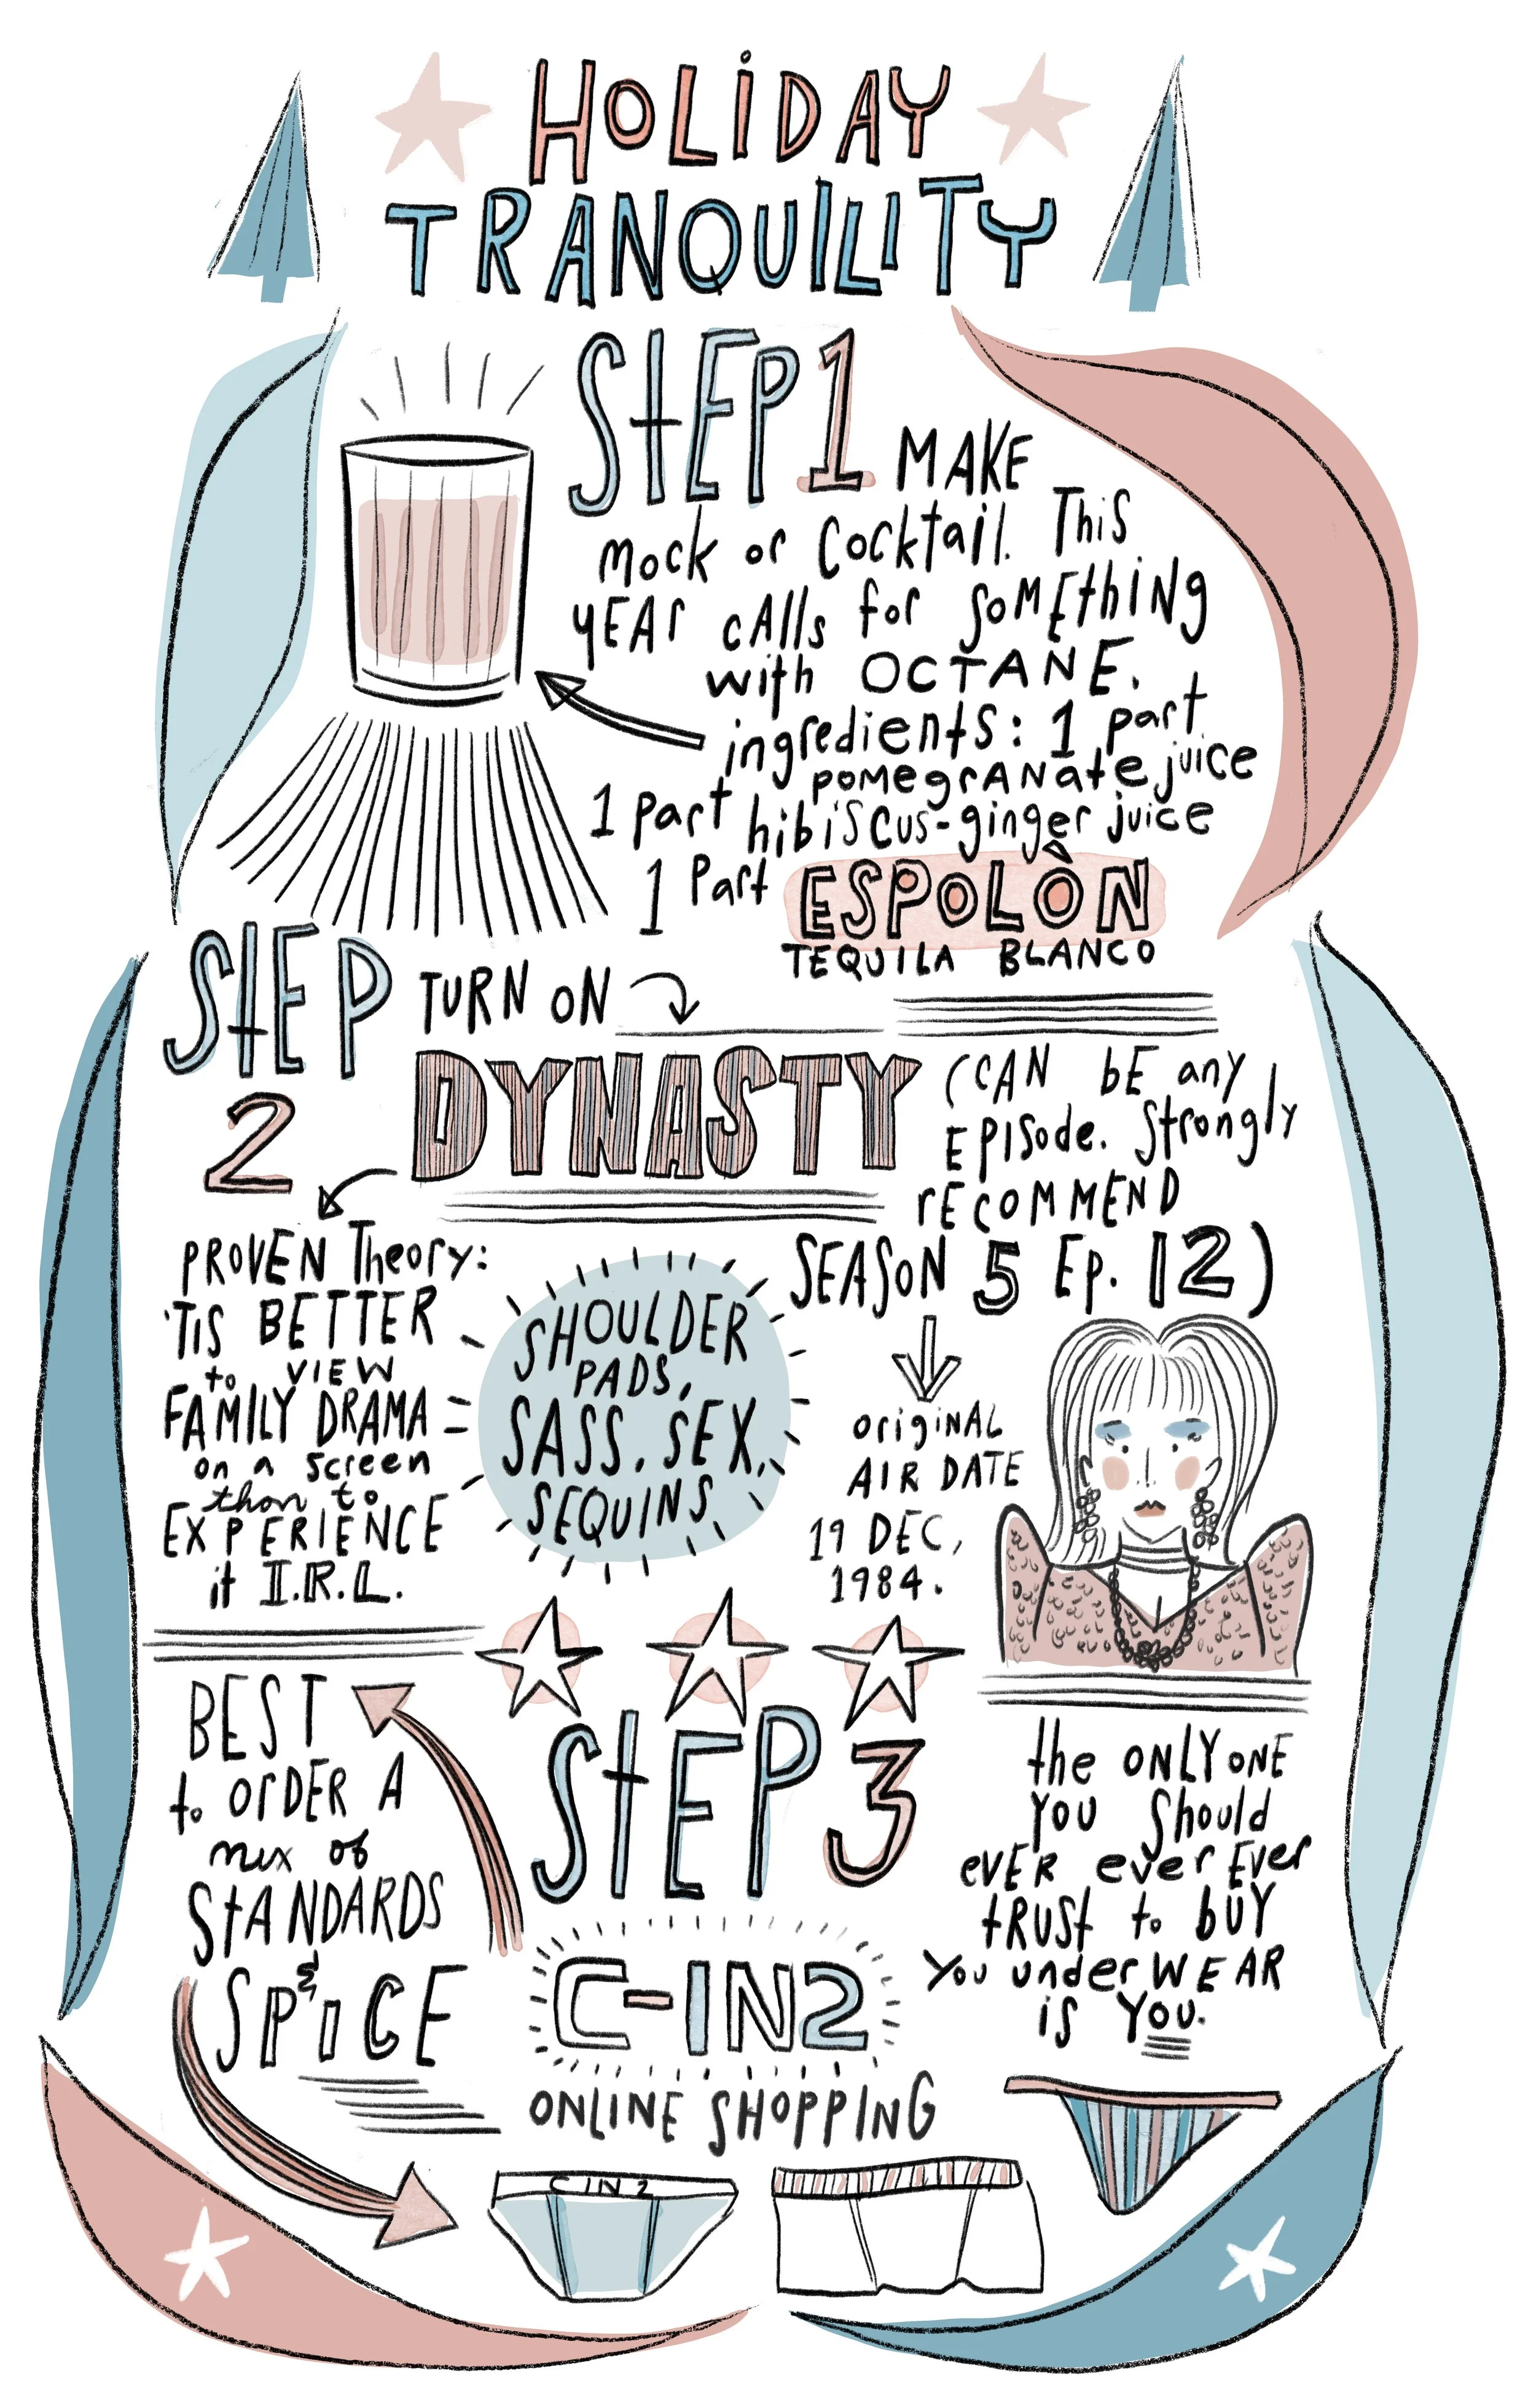 HOLIDAY
TRANQUILITY
STEP 1 MAKE
mock or cocktail. This
YEAr cAlls for SOMEthiNg
with OCTANE.
ingredients: 1 part
pomegrANate juice
1 part hibiscus-ginger juice
1 Part ESPOLÒN
TEQUILA BLANCO
STEP 2
TURN ON
DYNASTY
(CAN bE any
EPISode. Strongly
rECOMMEND
SEASON 5 Ep. 12)
PROVEN Theory:
'TIS BETTER
to VIEW
FAMILY DRAMA
on a screen
than to
EXPERIENCE
it I.R.L.
SHOULDER
PADS,
SASS, SEX,
SEQUINS
OriginAL
AIR DATE
19 DEC,
1984.
STEP 3
BEST
to OrDER A
mix of
STANDARDS
&
SPiCE
C-IN2
ONLINE SHOPPING
the ONLY ONE
YOU Should
eVER ever Ever
tRUSt to bUY
You underWEAR
is YOU.
C IN 2